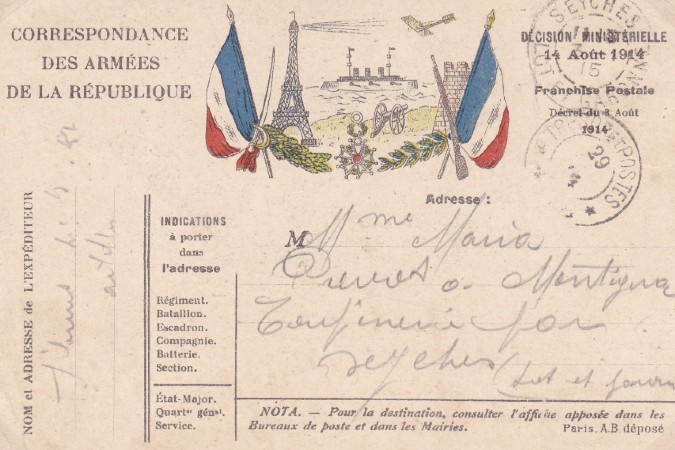 CORRESPONDANCE
DES ARMÉES
DE LA RÉPUBLIQUE
DÉCISION MINISTÉRIELLE
14 Août 1914
Franchise Postale
Décret du 3 Août
1914
SEYCHES
15
TRÉSOR ET POSTES
29
Adresse :
M Mme Maria
à Montignac
par
Seyches Lot et
NOM et ADRESSE de L'EXPÉDITEUR
INDICATIONS
à porter
dans
l'adresse
Régiment.
Bataillon.
Escadron.
Compagnie.
Batterie.
Section.
État-Major.
Quartr génal.
Service.
NOTA. — Pour la destination, consulter l'affiche apposée dans les
Bureaux de poste et dans les Mairies.
Paris. A.B déposé